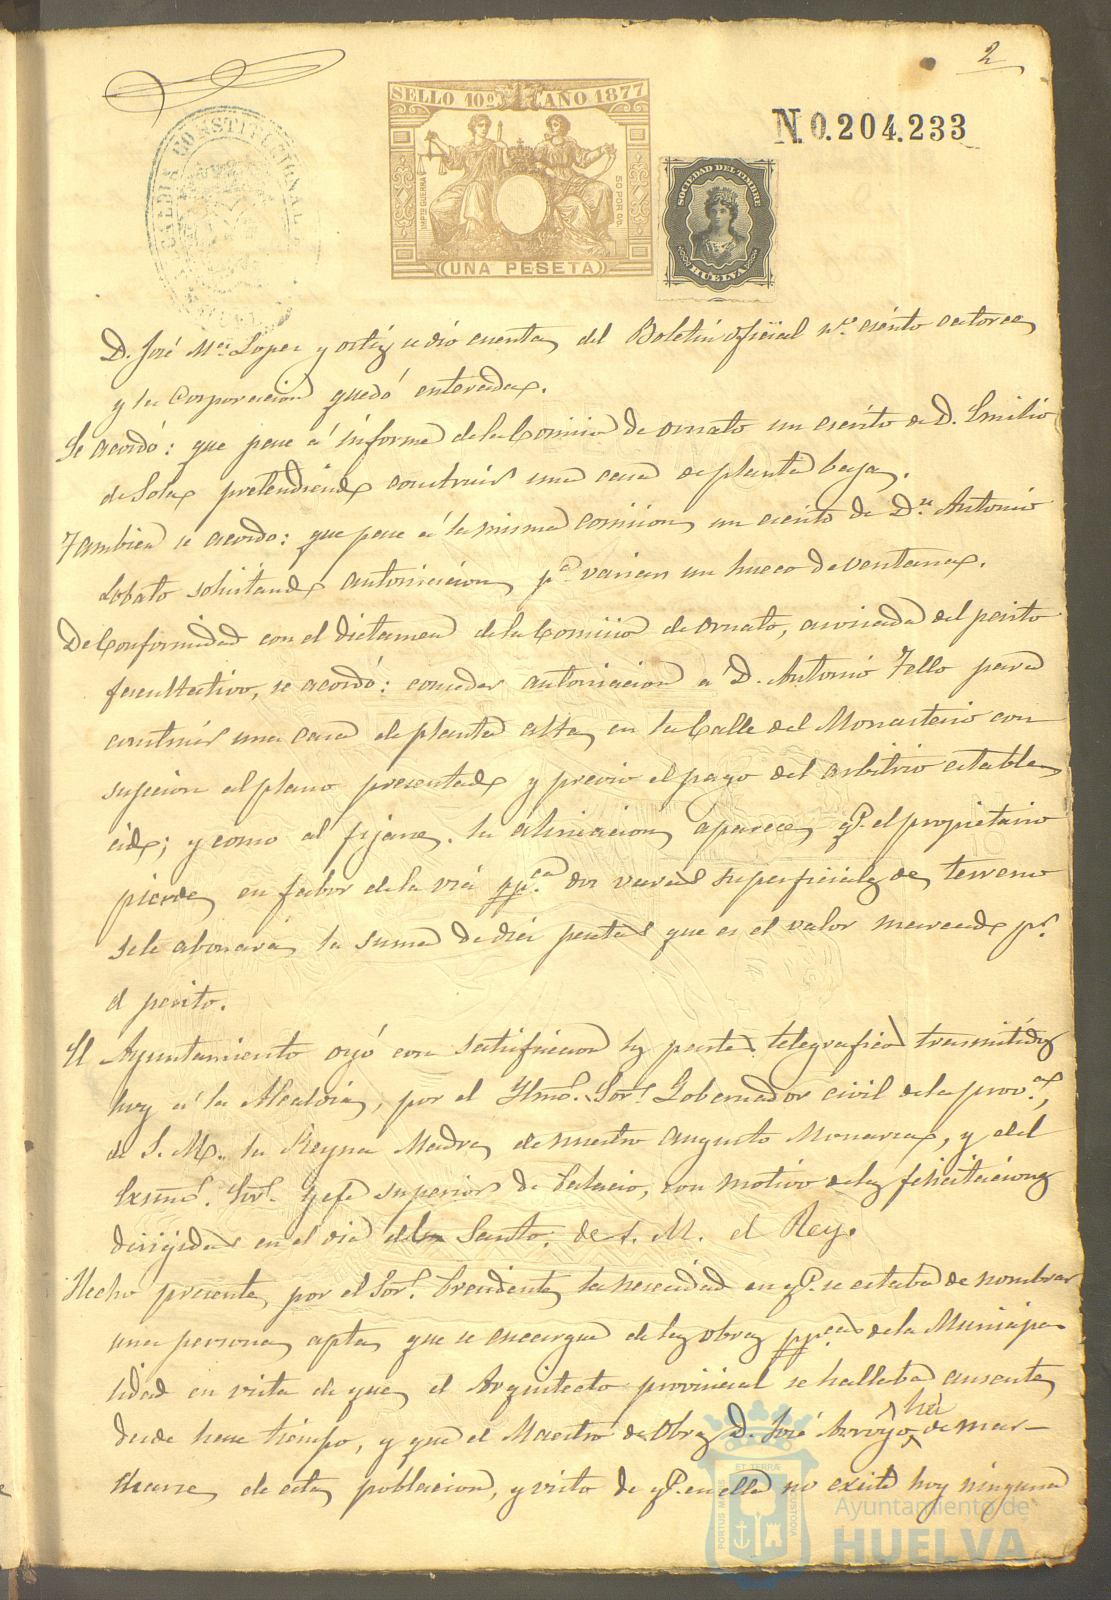 2
SELLO 10º AÑO 1877
N.0.204.233
ALCALDIA CONSTITUCIONAL
IMPTO GUERRA
50 POR 00.
UNA PESETA
SOCIEDAD DEL TIMBRE
HUELVA
D. José Mª Lopez y ortiz se dió cuenta del Boletin oficial nº ciento catorce
y la Corporacion quedó enterada.
Se acordó: que pase á informe de la Comisio de ornato un escrito de D. Emilio
de Sola pretendiendo construir una casa de planta baja.
Tambien se acordo: que pase á la misma comision un escrito de Dn Antonio
Lobato solicitando autorisacion pª variar un hueco de ventana.
De Conformidad con el dictamen de la Comisio de ornato, asociada del perito
facultativo, se acordó: conceder autorisacion á D. Antonio Tello para
construir una casa de planta alta en la Calle del Monasterio con
sujecion al plano presentado y previo el pago del arbitrio estable
cido; y como al fijarse la alineacion aparece qe el propietario
pierde en fabor de la via ppca dos varas superficiales de terreno
se le abonará la suma de diez pesetas que es el valor marcado pr
el perito.
El Ayuntamiento oyó con satisfaccion los partes telegraficos trasmitidos
hoy á la Alcaldia, por el Yltmo. Sor. Gobernador civil de la prova,
de S. M. la Reyna Madre de nuestro Augusto Monarca, y del
Exsmo. Sor. Gefe superior de Palacio, con motivo de las felicitaciones
dirijidas en el dia del Santo de S. M. el Rey.
Hecho presente, por el Sor. Presidente la necesidad en qe se estaba de nombrar
una persona apta que se encargue de las obras ppcas de la Municipa
lidad en vista de que el Arquitecto provincial se hallaba ausente
desde hace tiempo, y que el Maestro de Obras D. José Arroyo ha de mar-
charse de esta poblacion, y visto de qe en ella no existe hoy ninguna
PORTUS MARIS ET TERRAE CUSTODIA
Ayuntamiento de
HUELVA